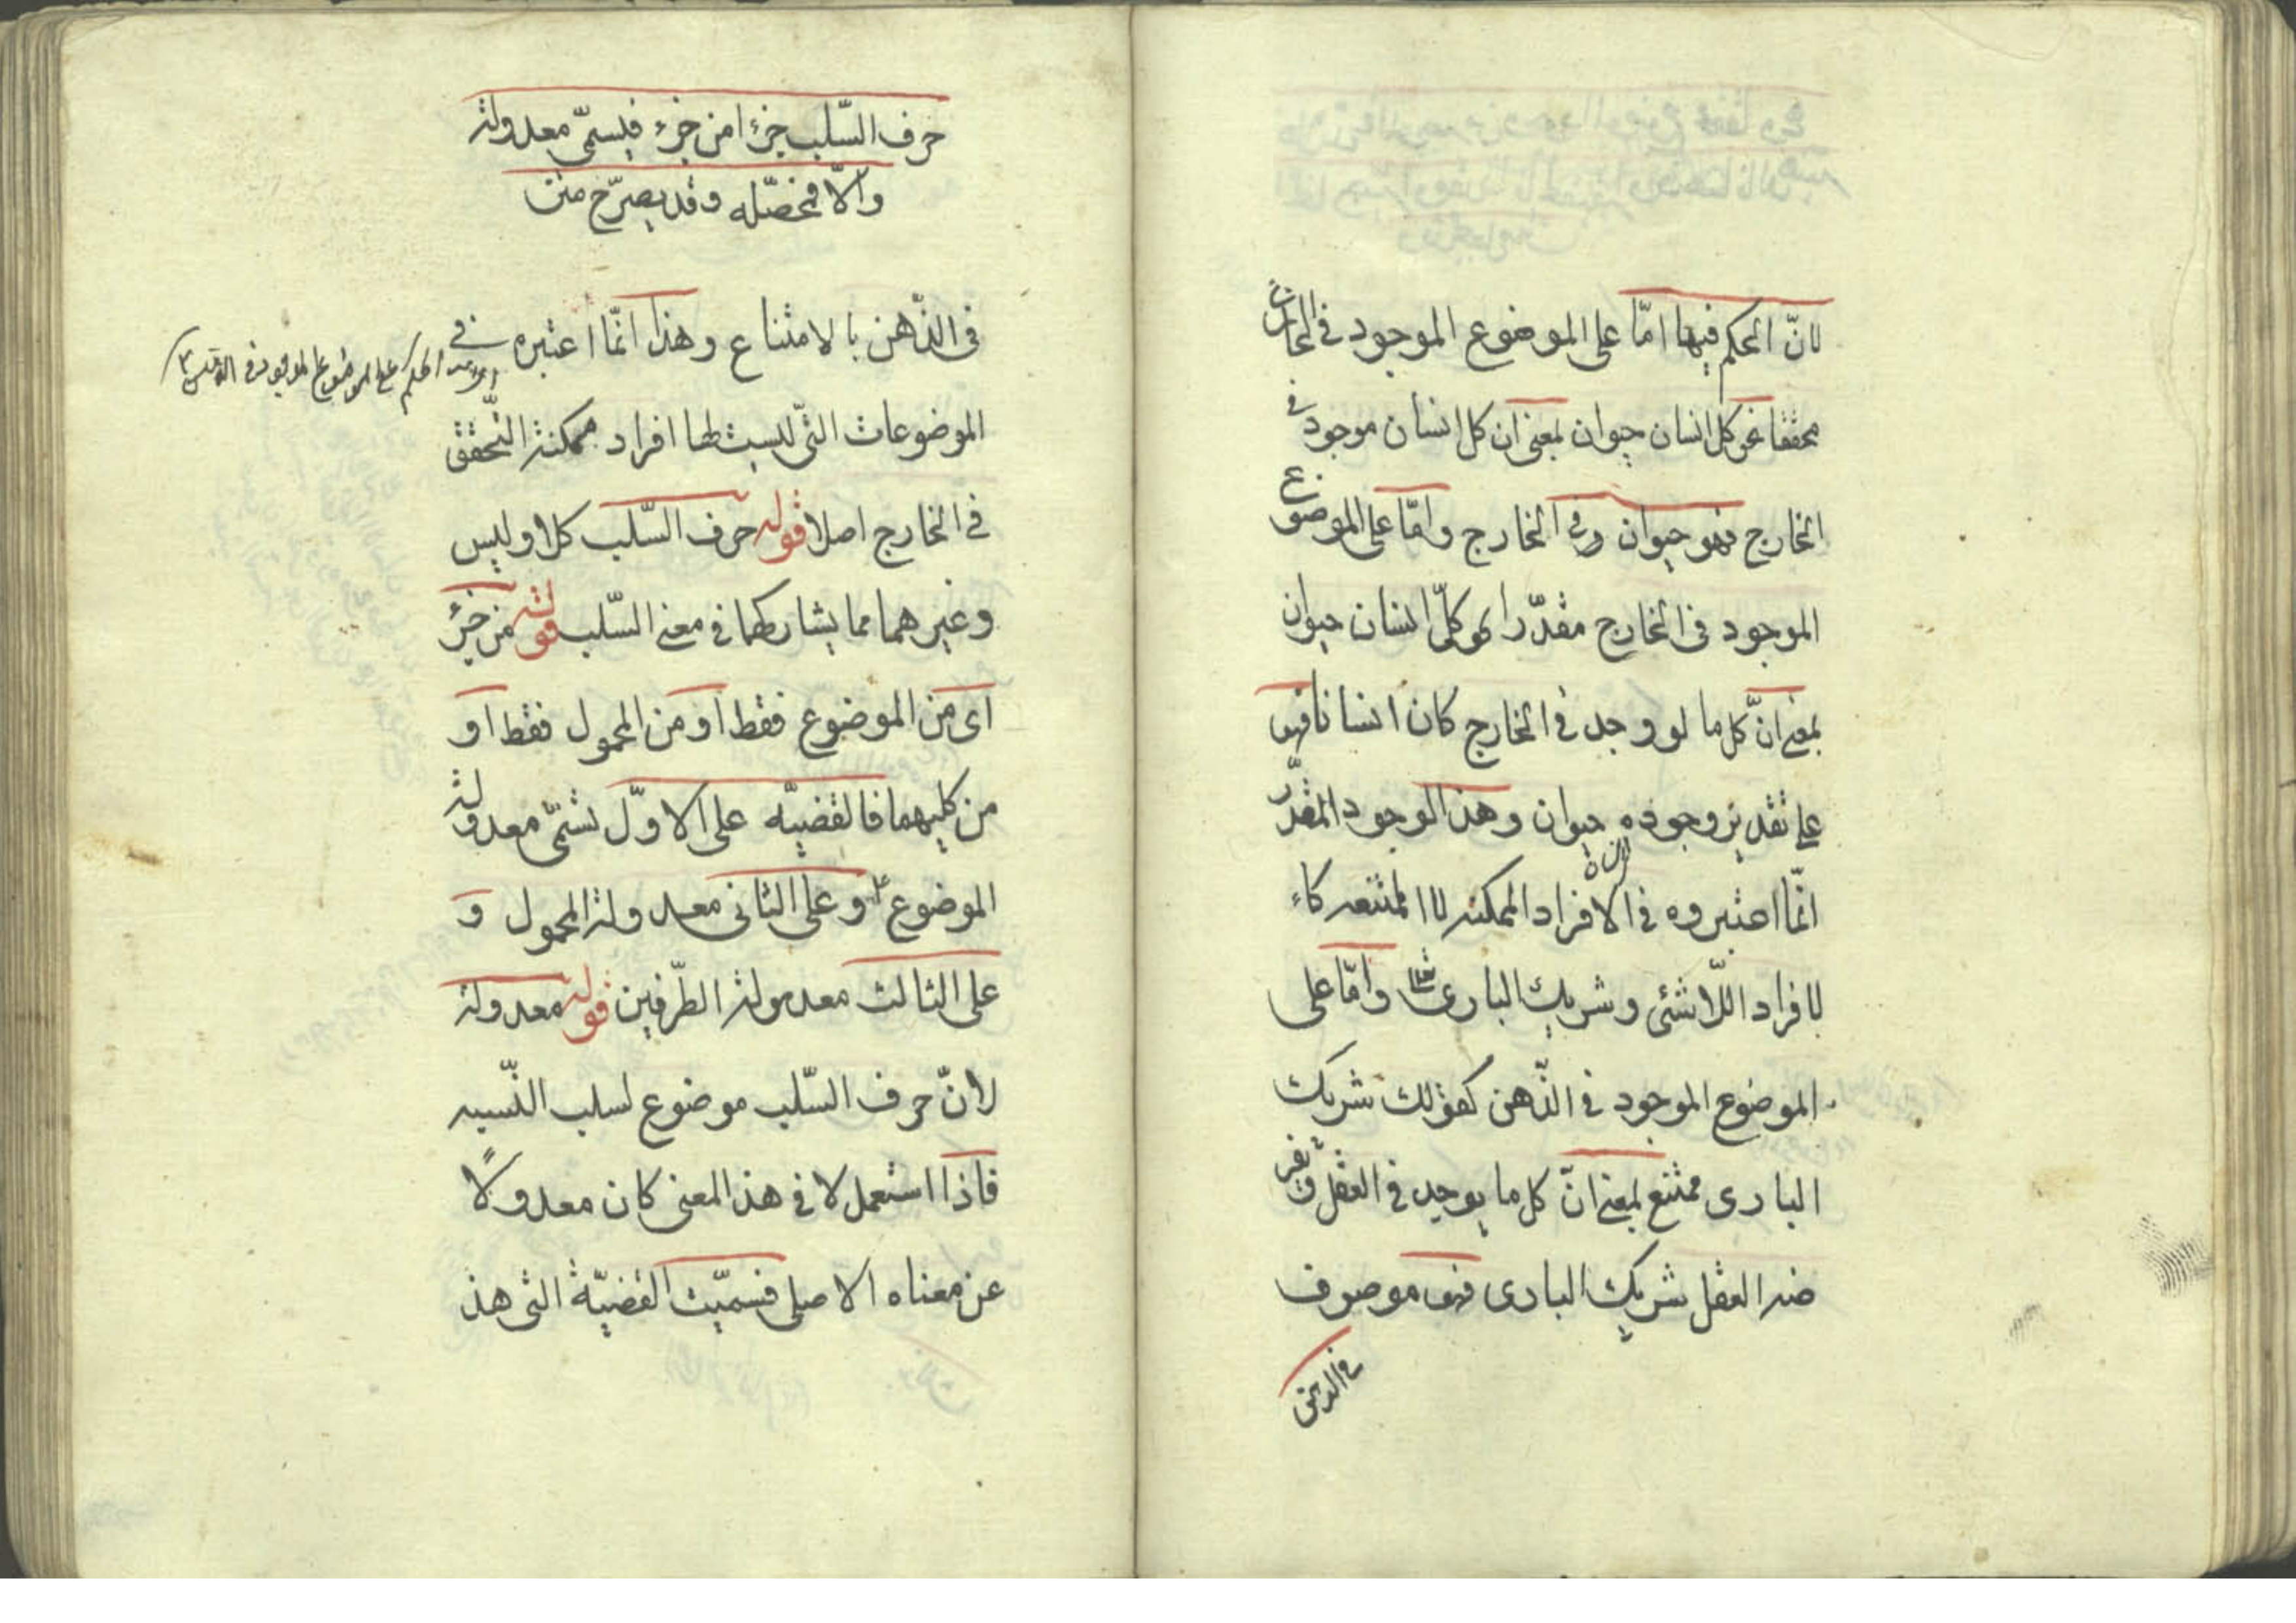 لانّ الحكم فيها امّا على الموضوع الموجود في الخارج
محققا نحو كل انسان حيوان بمعنى ان كل انسان موجود في
الخارج فهو حيوان في الخارج وامّا على الموضوع
الموجود في الخارج مقدّرا نحو كلّ انسان حيوان
بمعنى انّ كل ما لو وجد في الخارج كان انسانا فهو
على تقدير وجوده حيوان وهذا الوجود المقدّر
انّما اعتبروه في الافراد الممكنه لا الممتنعه كا
لافراد اللّاشئى وشريك البارى وامّا على
الموضوع الموجود في الذّهن كقولك شريك
البارى ممتنع بمعنى انّ كل ما يوجد في العقل ويفر
ضه العقل شريك البارى فهو موصوف
في الذهن
حرف السّلب جزءا من جزء فيسمّى معدولة
والّا فمحصّله وقد يصرّح متن
فى الذّهن بالامتناع وهذا انّما اعتبره في
اى الحكم على الموضوع الموجود في الذهن
الموضوعات الّتى ليست لها افراد ممكنة التّحقق
في الخارج اصلا قوله حرف السّلب كلا وليس
وغيرهما مما يشاركهما في معنى السّلب قوله من جزء
اى من الموضوع فقط او من المحمول فقط او
من كليهما فالقضيّه على الاوّل تسمّى معدولة
الموضوع وعلى الثانى معدولة المحمول و
على الثالث معدولة الطّرفين قوله معدولة
لانّ حرف السّلب موضوع لسلب النّسبه
فاذا استعمل لا في هذا المعنى كان معدولًا
عن معناه الاصلى فسمّيت القضيّة التى هذ